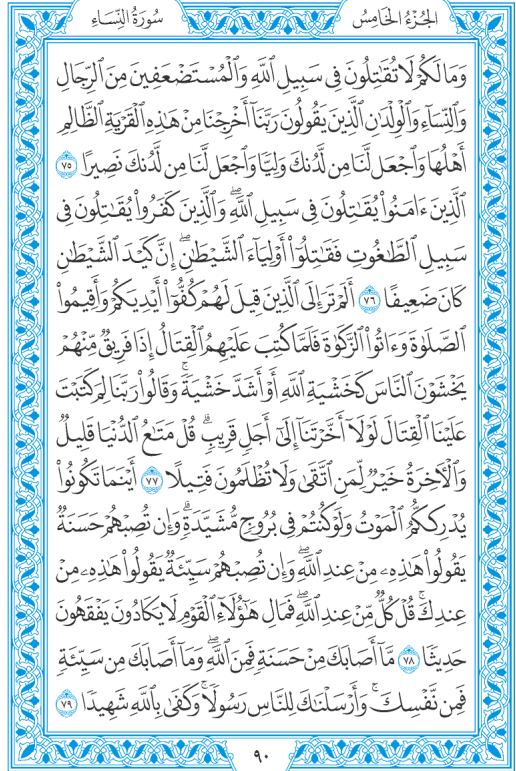 الجُزْءُ الخَامِسُ
سُورَةُ النِّسَاءِ
وَمَا لَكُمْ لَا تُقَٰتِلُونَ فِى سَبِيلِ ٱللَّهِ وَٱلْمُسْتَضْعَفِينَ مِنَ ٱلرِّجَالِ
وَٱلنِّسَآءِ وَٱلْوِلْدَٰنِ ٱلَّذِينَ يَقُولُونَ رَبَّنَآ أَخْرِجْنَا مِنْ هَٰذِهِ ٱلْقَرْيَةِ ٱلظَّالِمِ
أَهْلُهَا وَٱجْعَل لَّنَا مِن لَّدُنكَ وَلِيًّا وَٱجْعَل لَّنَا مِن لَّدُنكَ نَصِيرًا ٧٥
ٱلَّذِينَ ءَامَنُوا۟ يُقَٰتِلُونَ فِى سَبِيلِ ٱللَّهِۖ وَٱلَّذِينَ كَفَرُوا۟ يُقَٰتِلُونَ فِى
سَبِيلِ ٱلطَّٰغُوتِ فَقَٰتِلُوٓا۟ أَوْلِيَآءَ ٱلشَّيْطَٰنِۖ إِنَّ كَيْدَ ٱلشَّيْطَٰنِ
كَانَ ضَعِيفًا ٧٦ أَلَمْ تَرَ إِلَى ٱلَّذِينَ قِيلَ لَهُمْ كُفُّوٓا۟ أَيْدِيَكُمْ وَأَقِيمُوا۟
ٱلصَّلَوٰةَ وَءَاتُوا۟ ٱلزَّكَوٰةَ فَلَمَّا كُتِبَ عَلَيْهِمُ ٱلْقِتَالُ إِذَا فَرِيقٌ مِّنْهُمْ
يَخْشَوْنَ ٱلنَّاسَ كَخَشْيَةِ ٱللَّهِ أَوْ أَشَدَّ خَشْيَةًۚ وَقَالُوا۟ رَبَّنَا لِمَ كَتَبْتَ
عَلَيْنَا ٱلْقِتَالَ لَوْلَآ أَخَّرْتَنَآ إِلَىٰٓ أَجَلٍ قَرِيبٍۗ قُلْ مَتَٰعُ ٱلدُّنْيَا قَلِيلٌ
وَٱلْءَاخِرَةُ خَيْرٌ لِّمَنِ ٱتَّقَىٰ وَلَا تُظْلَمُونَ فَتِيلًا ٧٧ أَيْنَمَا تَكُونُوا۟
يُدْرِككُّمُ ٱلْمَوْتُ وَلَوْ كُنتُمْ فِى بُرُوجٍ مُّشَيَّدَةٍۗ وَإِن تُصِبْهُمْ حَسَنَةٌ
يَقُولُوا۟ هَٰذِهِۦ مِنْ عِندِ ٱللَّهِۖ وَإِن تُصِبْهُمْ سَيِّئَةٌ يَقُولُوا۟ هَٰذِهِۦ مِنْ
عِندِكَۚ قُلْ كُلٌّ مِّنْ عِندِ ٱللَّهِۖ فَمَالِ هَٰٓؤُلَآءِ ٱلْقَوْمِ لَا يَكَادُونَ يَفْقَهُونَ
حَدِيثًا ٧٨ مَّآ أَصَابَكَ مِنْ حَسَنَةٍ فَمِنَ ٱللَّهِۖ وَمَآ أَصَابَكَ مِن سَيِّئَةٍ
فَمِن نَّفْسِكَۚ وَأَرْسَلْنَٰكَ لِلنَّاسِ رَسُولًاۚ وَكَفَىٰ بِٱللَّهِ شَهِيدًا ٧٩
٩٠